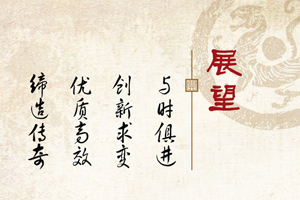 展望
与时俱进
创新求变
优质高效
缔造传奇